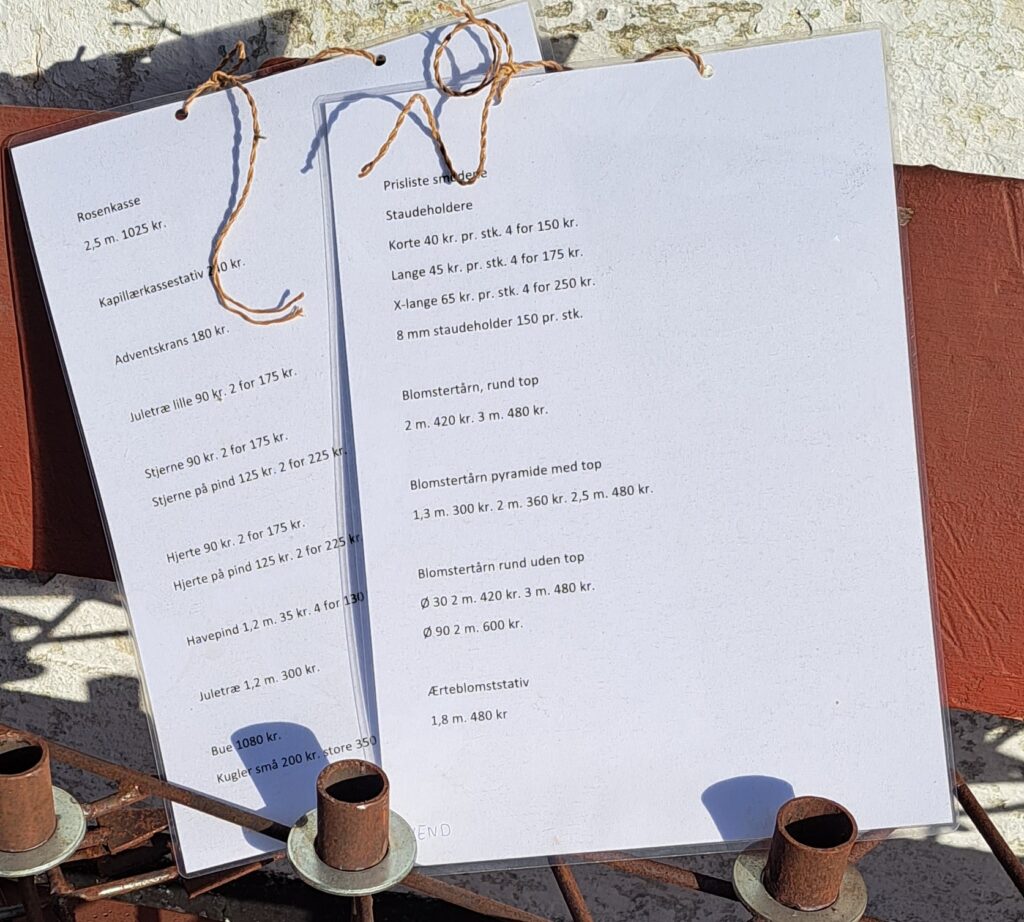 Rosenkasse
2,5 m. 1025 kr.
Kapillærkassestativ kr.
Adventskrans 180 kr.
Juletræ lille 90 kr. 2 for 175 kr.
Stjerne 90 kr. 2 for 175 kr.
Stjerne på pind 125 kr. 2 for 225 kr.
Hjerte 90 kr. 2 for 175 kr.
Hjerte på pind 125 kr. 2 for 225 kr
Havepind 1,2 m. 35 kr. 4 for 130
Juletræ 1,2 m. 300 kr.
Bue 1080 kr.
Kugler små 200 kr. store 350
Prisliste smedene
Staudeholdere
Korte 40 kr. pr. stk. 4 for 150 kr.
Lange 45 kr. pr. stk. 4 for 175 kr.
X-lange 65 kr. pr. stk. 4 for 250 kr.
8 mm staudeholder 150 pr. stk.
Blomstertårn, rund top
2 m. 420 kr. 3 m. 480 kr.
Blomstertårn pyramide med top
1,3 m. 300 kr. 2 m. 360 kr. 2,5 m. 480 kr.
Blomstertårn rund uden top
Ø 30 2 m. 420 kr. 3 m. 480 kr.
Ø 90 2 m. 600 kr.
Ærteblomststativ
1,8 m. 480 kr